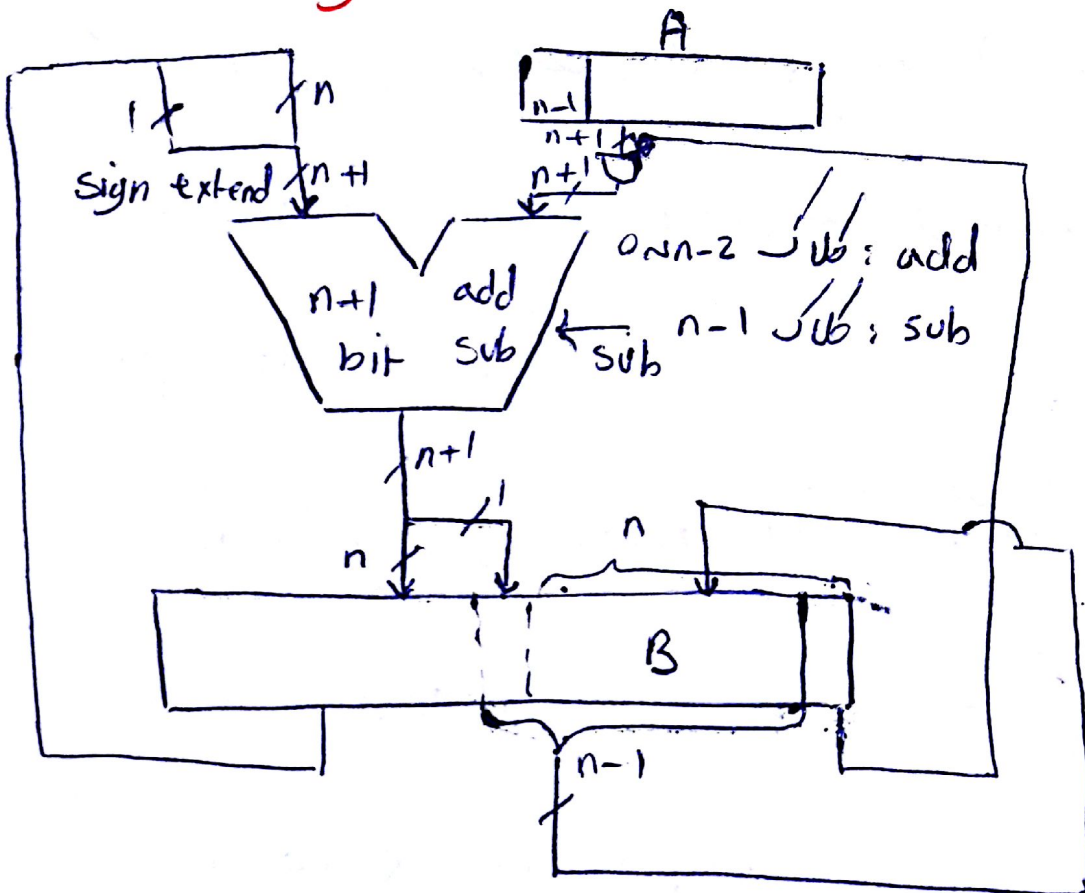 A
1
n
n-1
n+1
sign extend
n+1
n+1
n+1
bit
add
sub
sub
0~n-2 سیکل: add
n-1 سیکل: sub
n+1
1
n
n
B
n-1